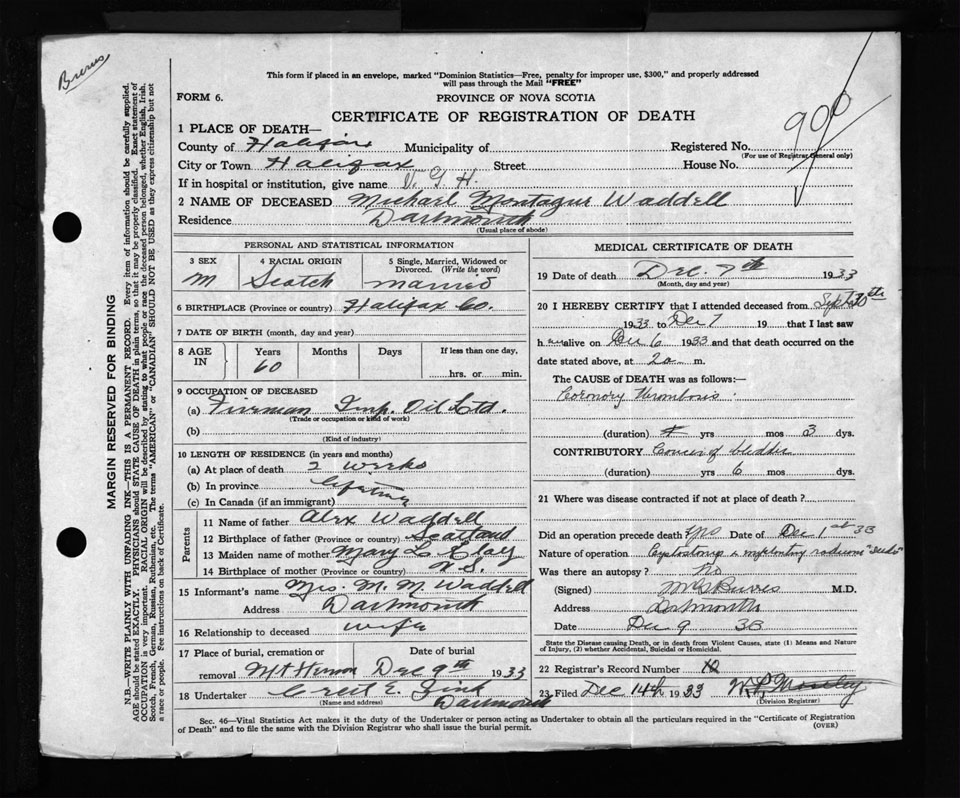 Burns
This form if placed in an envelope, marked "Dominion Statistics—Free, penalty for improper use, $300," and properly addressed
will pass through the Mail "FREE"
FORM 6.
PROVINCE OF NOVA SCOTIA
CERTIFICATE OF REGISTRATION OF DEATH
900
1 PLACE OF DEATH—
County of Halifax Municipality of Registered No.
(For use of Registrar General only)
City or Town Halifax Street House No.
If in hospital or institution, give name V. G. H.
2 NAME OF DECEASED Michael Montague Waddell
Residence Dartmouth
(Usual place of abode)
PERSONAL AND STATISTICAL INFORMATION
3 SEX 4 RACIAL ORIGIN 5 Single, Married, Widowed or
Divorced. (Write the word)
M Scotch married
6 BIRTHPLACE (Province or country) Halifax Co.
7 DATE OF BIRTH (month, day and year)
8 AGE IN Years Months Days If less than one day,
60 hrs. or min.
9 OCCUPATION OF DECEASED
(a) Fireman Imp. Oil Ltd.
(Trade or occupation or kind of work)
(b)
(Kind of industry)
10 LENGTH OF RESIDENCE (in years and months)
(a) At place of death 2 weeks
(b) In province lifetime
(c) In Canada (if an immigrant)
Parents
11 Name of father Alex Waddell
12 Birthplace of father (Province or country) Scotland
13 Maiden name of mother Mary L.
14 Birthplace of mother (Province or country) N.S.
15 Informant's name Mrs. M. M. Waddell
Address Dartmouth
16 Relationship to deceased wife
17 Place of burial, cremation or Date of burial
removal Mt Hermon Dec 9th 1933
18 Undertaker E.
(Name and address) Dartmouth
MEDICAL CERTIFICATE OF DEATH
19 Date of death Dec. 7th 1933
(Month, day and year)
20 I HEREBY CERTIFY that I attended deceased from Sept 30th
1933 to Dec 7 19 that I last saw
h im alive on Dec 6 1933 and that death occurred on the
date stated above, at 2 a m.
The CAUSE OF DEATH was as follows:—
Coronory Thrombosis
(duration) yrs mos 3 dys.
CONTRIBUTORY Cancer of bladder
(duration) yrs 6 mos dys.
21 Where was disease contracted if not at place of death?
Did an operation precede death yes Date of Dec 1st 33
Nature of operation radium "seeds"
Was there an autopsy? no
(Signed) M.D.
Address Dartmouth
Date Dec 9 33
State the Disease causing Death, or in death from Violent Causes, state (1) Means and Nature
of Injury, (2) whether Accidental, Suicidal or Homicidal.
22 Registrar's Record Number
23 Filed Dec 14th 1933
(Division Registrar)
Sec. 46—Vital Statistics Act makes it the duty of the Undertaker or person acting as Undertaker to obtain all the particulars required in the "Certificate of Registration
of Death" and to file the same with the Division Registrar who shall issue the burial permit. (OVER)
MARGIN RESERVED FOR BINDING
N.B.—WRITE PLAINLY WITH UNFADING INK—THIS IS A PERMANENT RECORD. Every item of information should be carefully supplied.
AGE should be stated EXACTLY. PHYSICIANS should STATE CAUSE OF DEATH in plain terms, so that it may be properly classified. Exact statement of
OCCUPATION is very important. RACIAL ORIGIN will be described by stating to what people or race the deceased person belonged, whether English, Irish,
Scotch, French, German, Russian, Ruthenian, etc. The terms "AMERICAN" or "CANADIAN" SHOULD NOT BE USED as they express citizenship but not
a race or people. Fee instructions on back of Certificate.